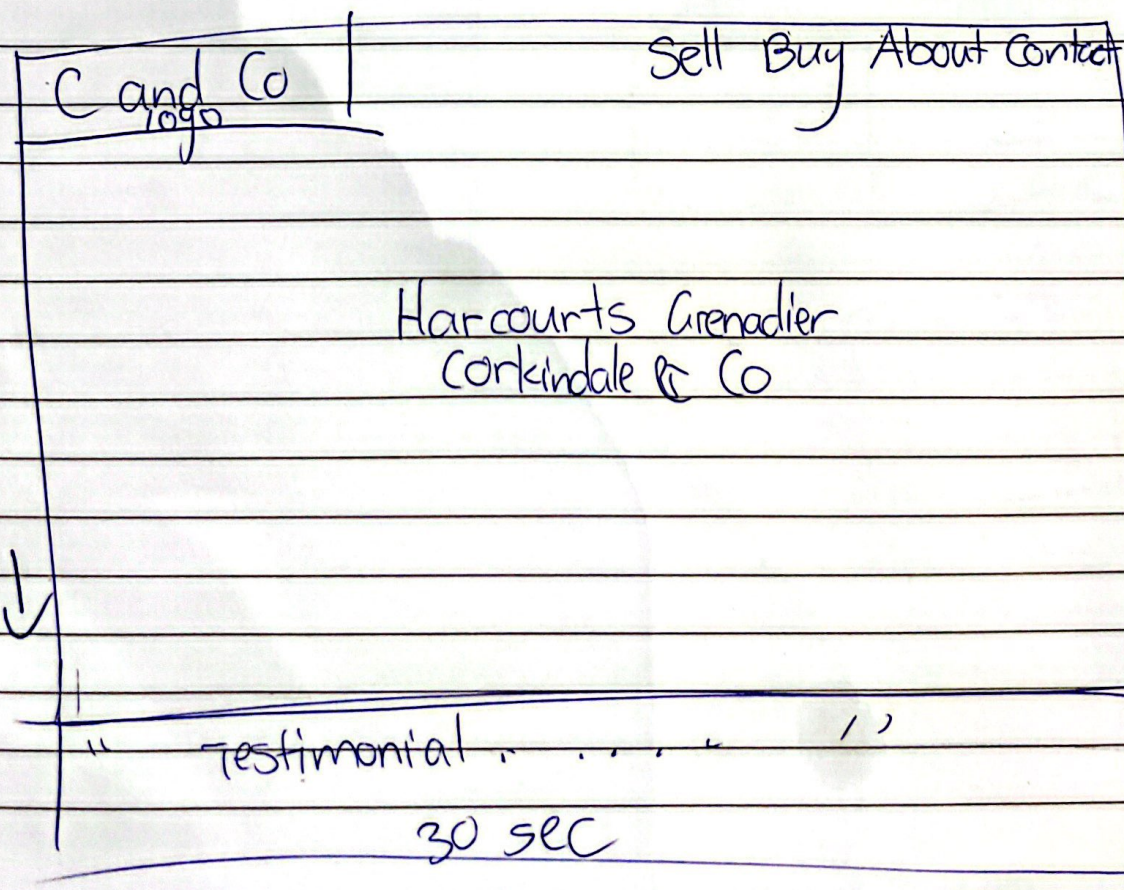 C and Co
logo
Sell Buy About Contact
Harcourts Grenadier
Corkindale & Co
" Testimonial . . . . . - "
30 sec